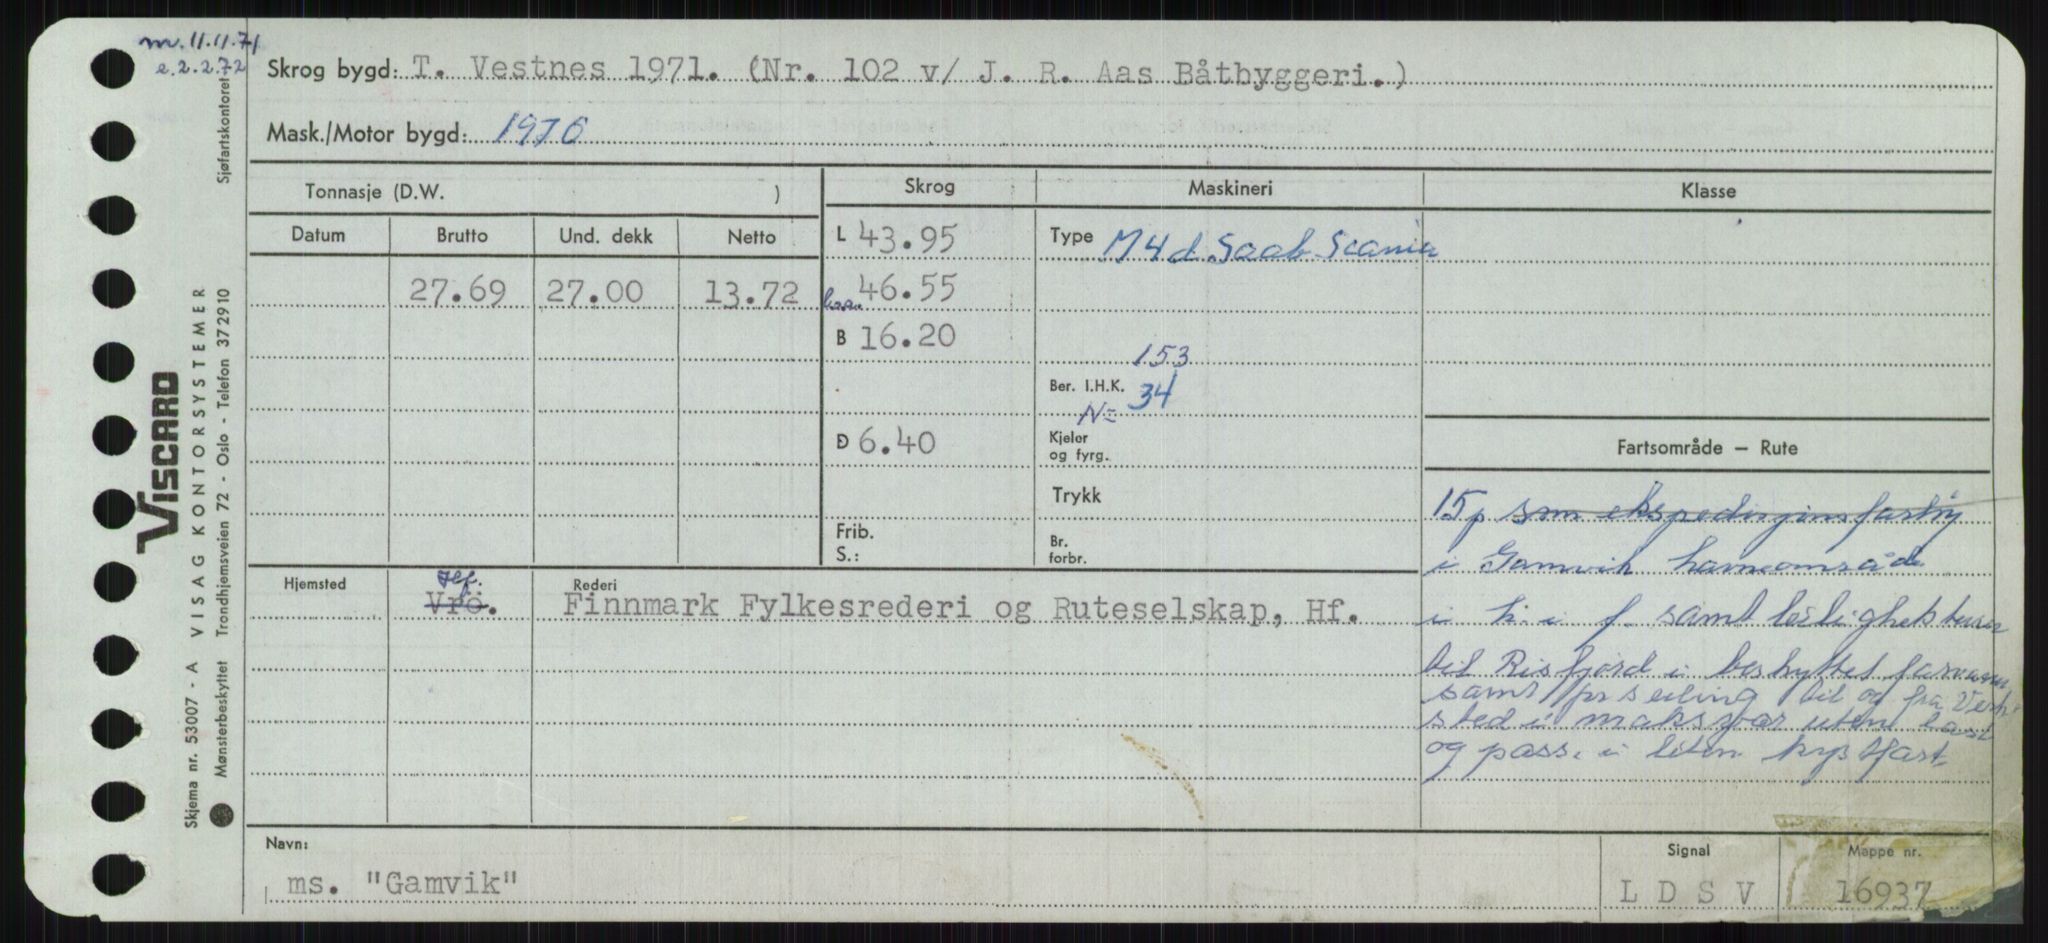 m. 11.11.71
e. 2.2.72
Sjøfartskontoret
Skrog bygd: T. Vestnes 1971. (Nr. 102 v/ J. R. Aas Båtbyggeri.)
Mask./Motor bygd: 1976
Tonnasje (D.W. )
Skrog
Maskineri
Klasse
Datum Brutto Und. dekk Netto
27.69 27.00 13.72
L 43.95
l.o.a. 46.55
B 16.20
D 6.40
Frib.
S.:
Type M4d. Saab-Scania
153
Ber. I.H.K. 34
N=
Kjeler
og fyrg.
Trykk
Br.
forbr.
Fartsområde — Rute
15p som ekspedisjonsfartøy
i Gamvik havneområde
i h. i f. samt leilighetsturer
til Risfjord i beskyttet farvann
samt for seiling til og fra Verk-
sted i maksvær uten last
og pass. i liten kystfart
Hjemsted Hf.
Vrø.
Rederi
Finnmark Fylkesrederi og Ruteselskap, Hf.
Navn:
ms. "Gamvik"
Signal
L D S V
Mappe nr.
16937
VISCARD
Skjema nr. 53007 - A VISAG KONTORSYSTEMER
Mønsterbeskyttet Trondhjemsveien 72 - Oslo - Telefon 37 29 10